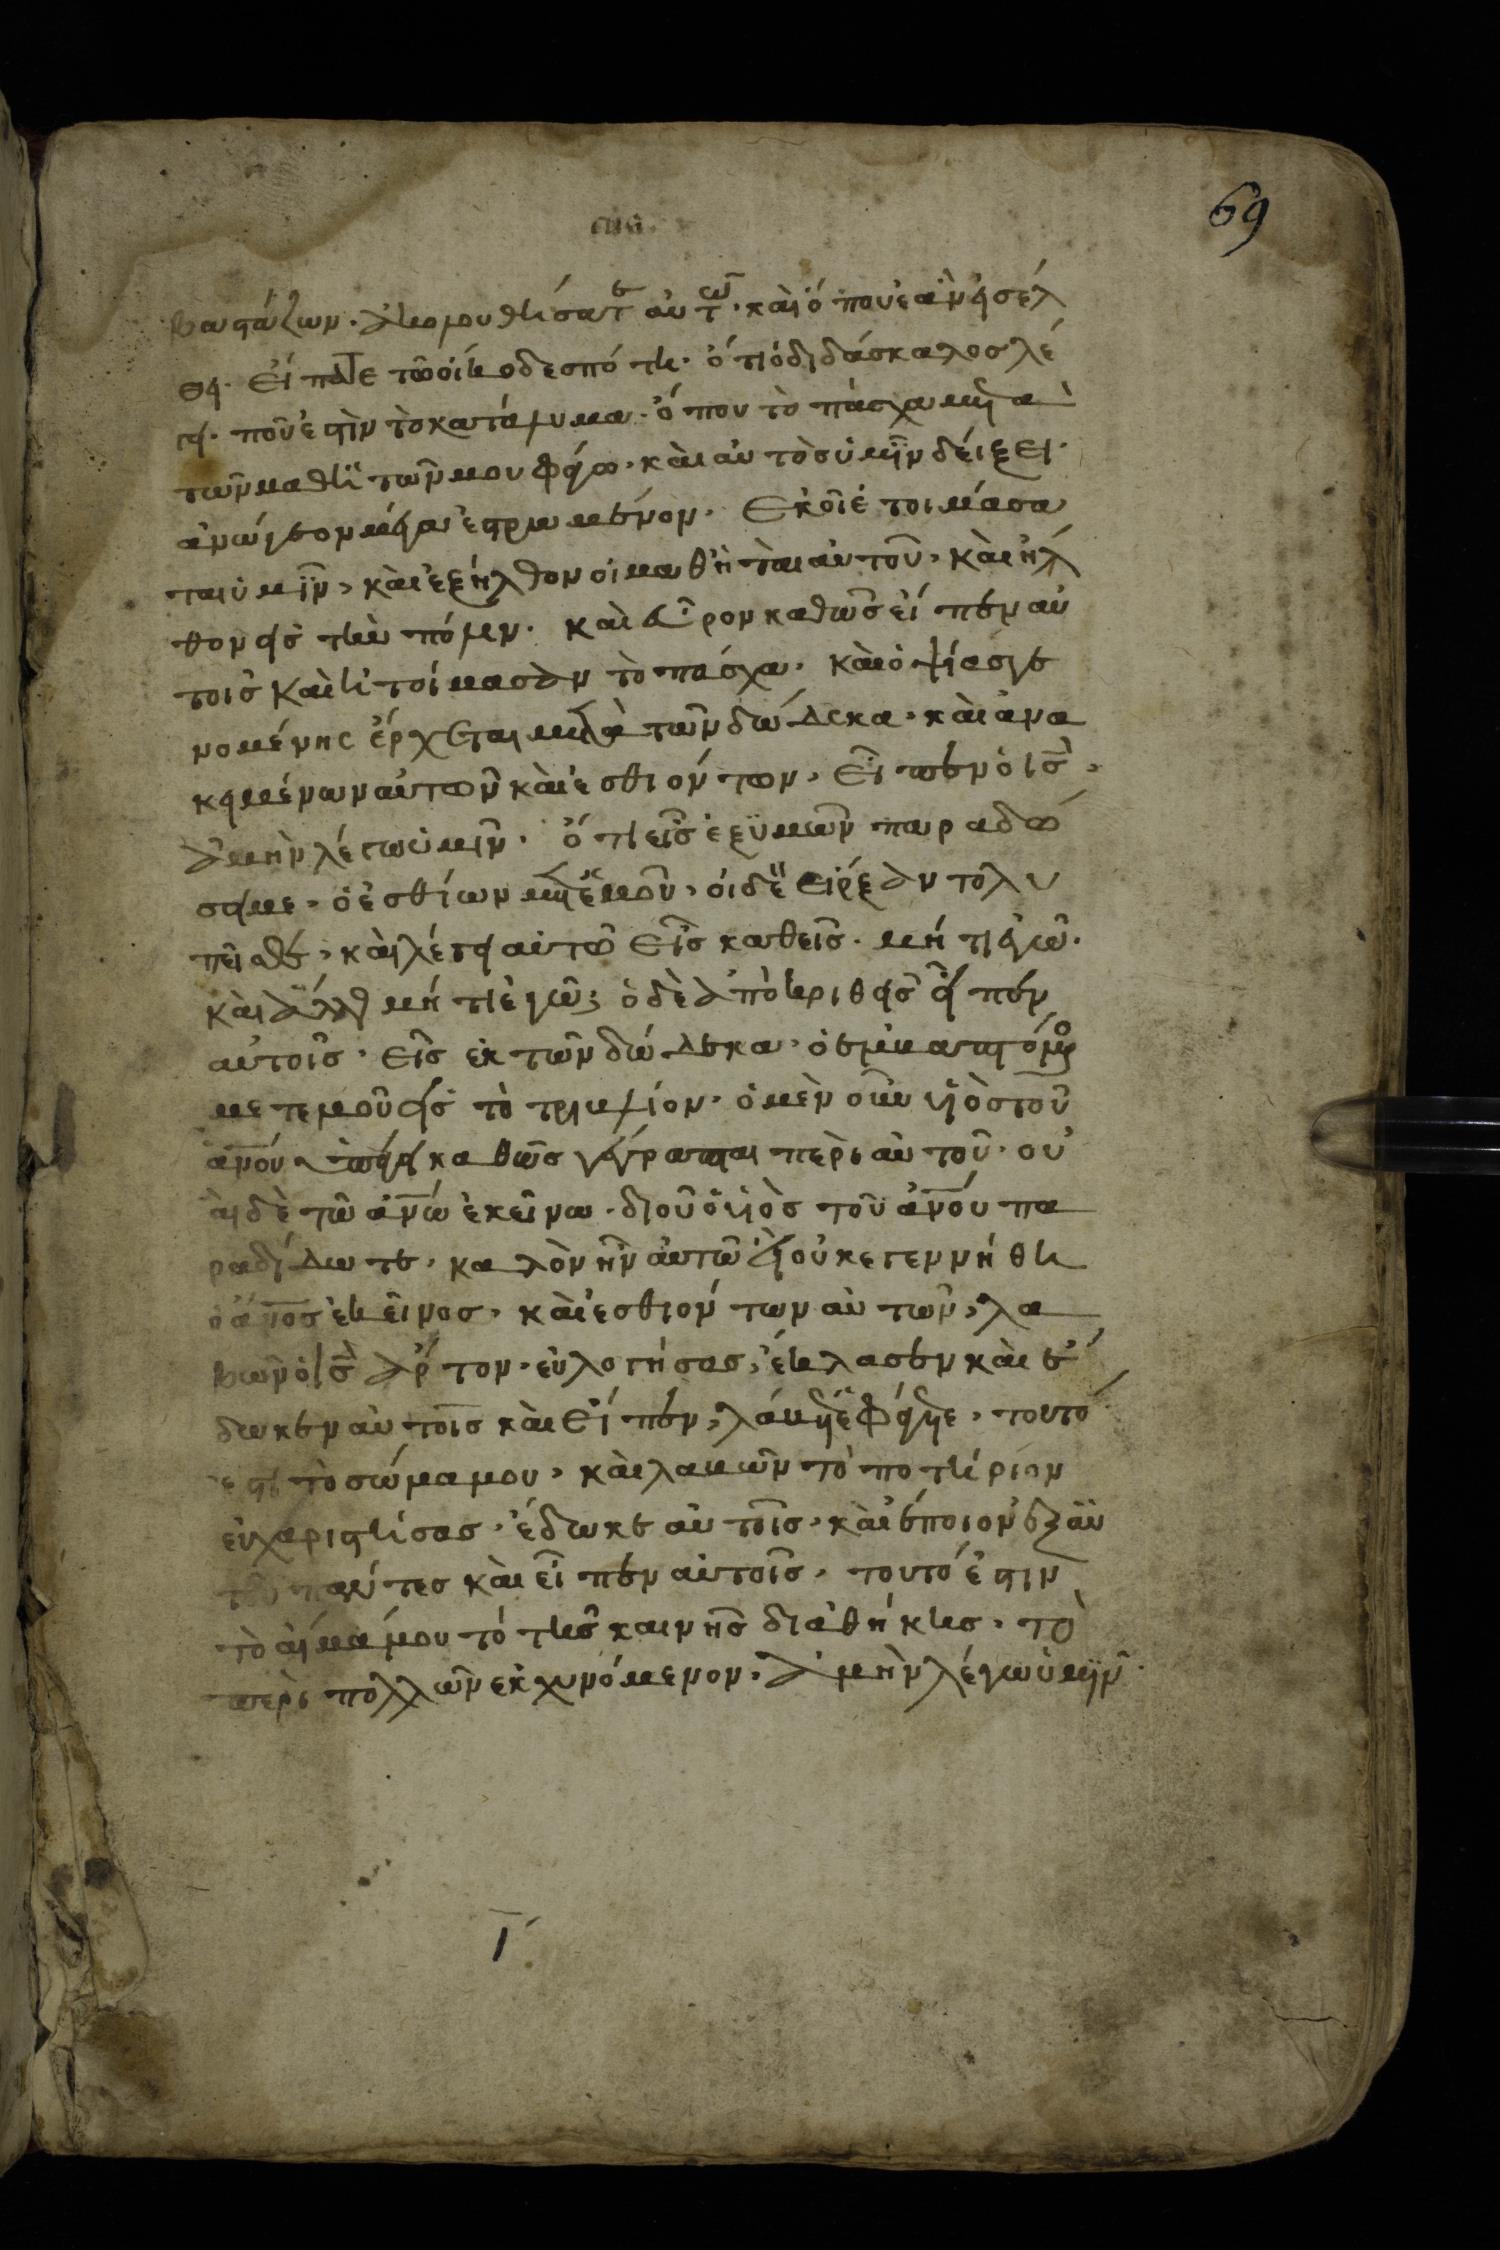 69
βαστάζων. ἀκολουθήσατε αὐτῶ. καὶ ὅπου ἐὰν εἰσέλ
θη. εἴπατε τῶ οἰκοδεσπότη. ὅτι ὁ διδάσκαλος λέ
γει. ποῦ ἐστὶν τὸ κατάλυμα. ὅπου τὸ πάσχα μετὰ
τῶν μαθητῶν μου φάγω. καὶ αὐτὸς ὑμῖν δείξει.
ἀνώγεον μέγα ἐστρωμένον. ἐκεῖ ἑτοιμάσα
ται ὑμῖν, καὶ ἐξήλθον οἱ μαθηταὶ αὐτοῦ, καὶ ἦλ
θον εἰς τὴν πόλιν. καὶ εὗρον καθὼς εἶπεν αὐ
τοῖς καὶ ἡτοίμασαν τὸ πάσχα. καὶ ὀψίας γε
νομένης ἔρχεται μετὰ τῶν δώδεκα. καὶ ἀνα
κειμένων αὐτῶν καὶ ἐσθιόντων, εἶπεν ὁ ις,
ἀμὴν λέγω ὑμῖν. ὅτι εἷς ἐξ ὑμῶν παραδώ
σει με. ὁ ἐσθίων μετ ἐμοῦ. οἱ δὲ εἴρξαν τὸ λυ
πεῖσθε, καὶ λέγει αὐτῶ εἷς καθεῖς. μή τι ἐγώ.
καὶ ἄλλος μή τι ἐγώ; ὁ δὲ ἀποκριθεὶς εἶπεν
αὐτοῖς. εἷς ἐκ τῶν δώδεκα. ὁ ἐμβαπτόμενος
μετ εμοῦ εἰς τὸ τρυβλίον. ὁ μὲν οὖν υἱὸς τοῦ
ἀνου ὑπάγει καθὼς γέγραπται περὶ αὐτοῦ. οὐ
αὶ δὲ τῶ ἀνω ἐκείνω. δι οὗ ὁ υἱὸς τοῦ ἀνου πα
ραδίδωτε. καλὸν ἦν αὐτῶ εἰ οὐκ εγεννήθη
ὁ ἀνος ἐκεῖνος. καὶ ἐσθιόντων αὐτῶν, λα
βὼν ὁ ις ἄρτον. εὐλογήσας, ἔκλασεν καὶ ἔ
δωκεν αὐτοῖς καὶ εἶπεν, λάβετε φάγετε, τουτό
ἐστι τὸ σώμα μου, καὶ λαβὼν τὸ ποτήριον
εὐχαριστήσας. ἔδωκε αὐτοῖς. καὶ ἔποιον ἐξ αὐ
τοῦ πάντες καὶ εἶπεν αὐτοῖς, τουτό ἐστιν
τὸ αἵμά μου τό τῆς καινῆς διαθήκης, τὸ
περὶ πολλῶν ἐκχυνόμενον. ἀμὴν λέγω ὑμῖν.
Γ